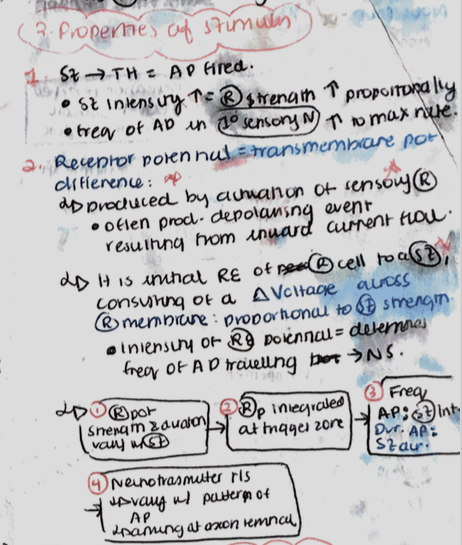 3. Properties of stimulus
1. St → TH = AP fired.
• St intensity ↑ = Ⓡ strength ↑ proportionally
• freq of AP in 1° sensory N ↑ to max rate.
2. Receptor potential = transmembrane pot
difference:
produced by activation of sensory Ⓡ
• often prod. depolarising event
resulting from inward current flow.
It is initial RE of Ⓡ cell to a St,
consisting of a Δ voltage across
Ⓡ membrane: proportional to St strength
• intensity of Ⓡ potential = determines
freq of AP travelling → NS.
① Ⓡ pot
strength & duration
vary w/ St
→ ② Ⓡp integrated
at trigger zone
→ ③ Freq
AP: St Int
Dur. AP:
St dur.
→ ④ Neurotrasmitter rls
vary w/ pattern of
AP
at axon terminal